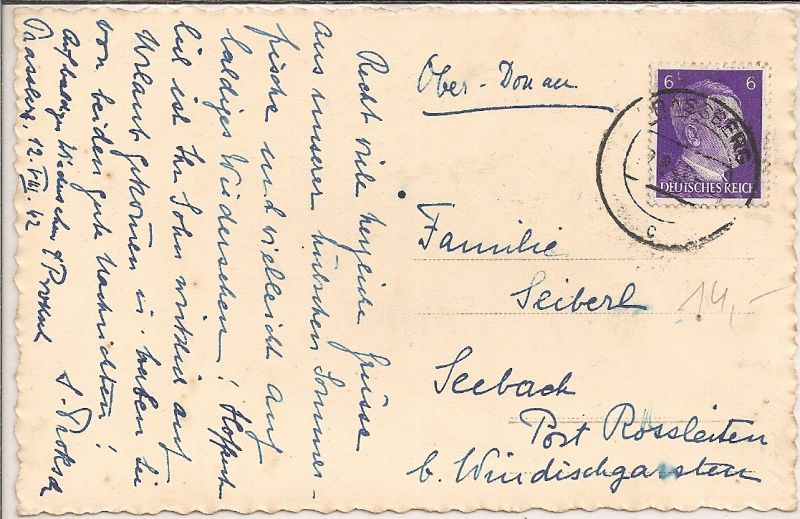 Recht viele herzliche Grüsse
aus unserer hübschen Sommer-
frische und vielleicht auf
baldiges Wiedersehen! Hoffent-
lich ist Ihr Sohn wirklich auf
Urlaub gekommen u. haben Sie
von beiden gute Nachrichten!
Auf baldiges Wiedersehen
12. VIII. 42
Ober-Donau
6 6
DEUTSCHES REICH
c
Familie
Seiberl
14,-
Seebach
Post Rossleiten
b. Windischgarsten